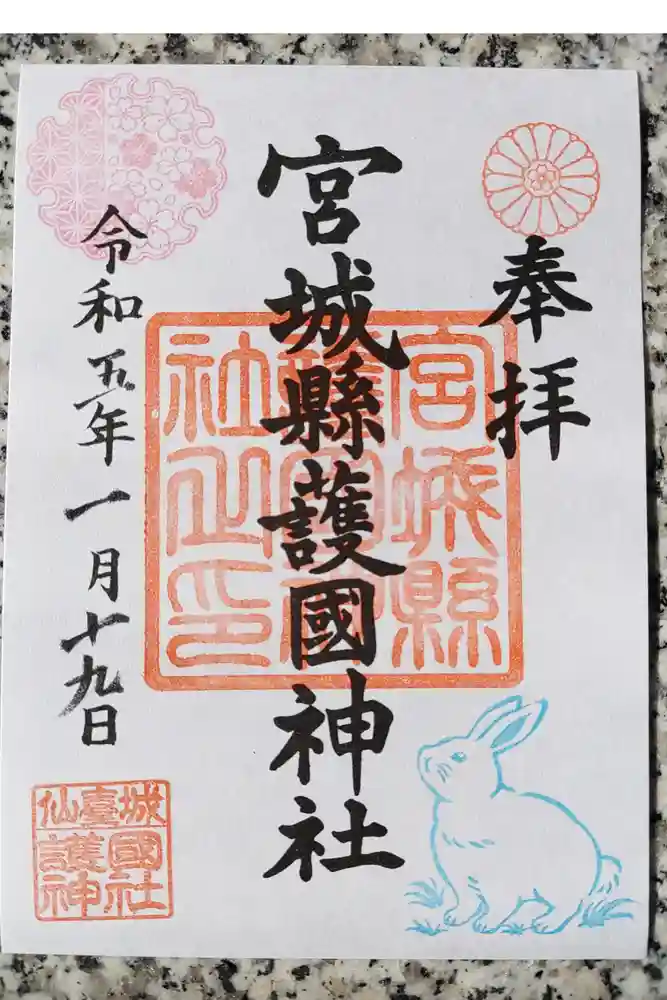 奉拝
宮城縣護國神社
令和五年一月十九日
宮城縣
社之印
仙臺城
護國
神社